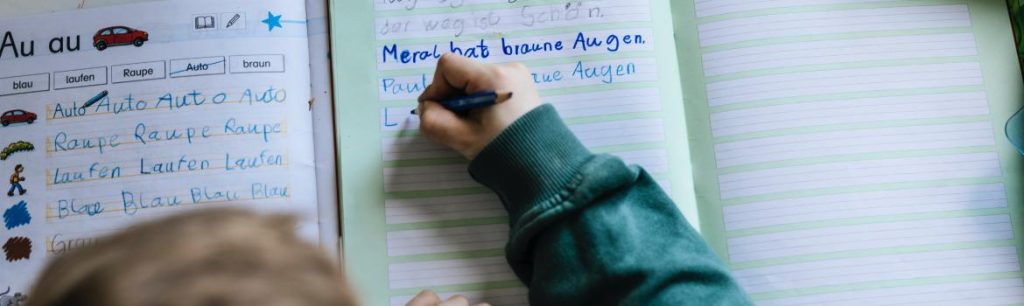 Au au
blau laufen Raupe Auto braun
Auto Auto Auto Auto
Raupe Raupe Raupe
Laufen Laufen Laufen
Blau Blau Blau Blau
der weg ist Schön.
Meral hat braune Augen.
Augen
L